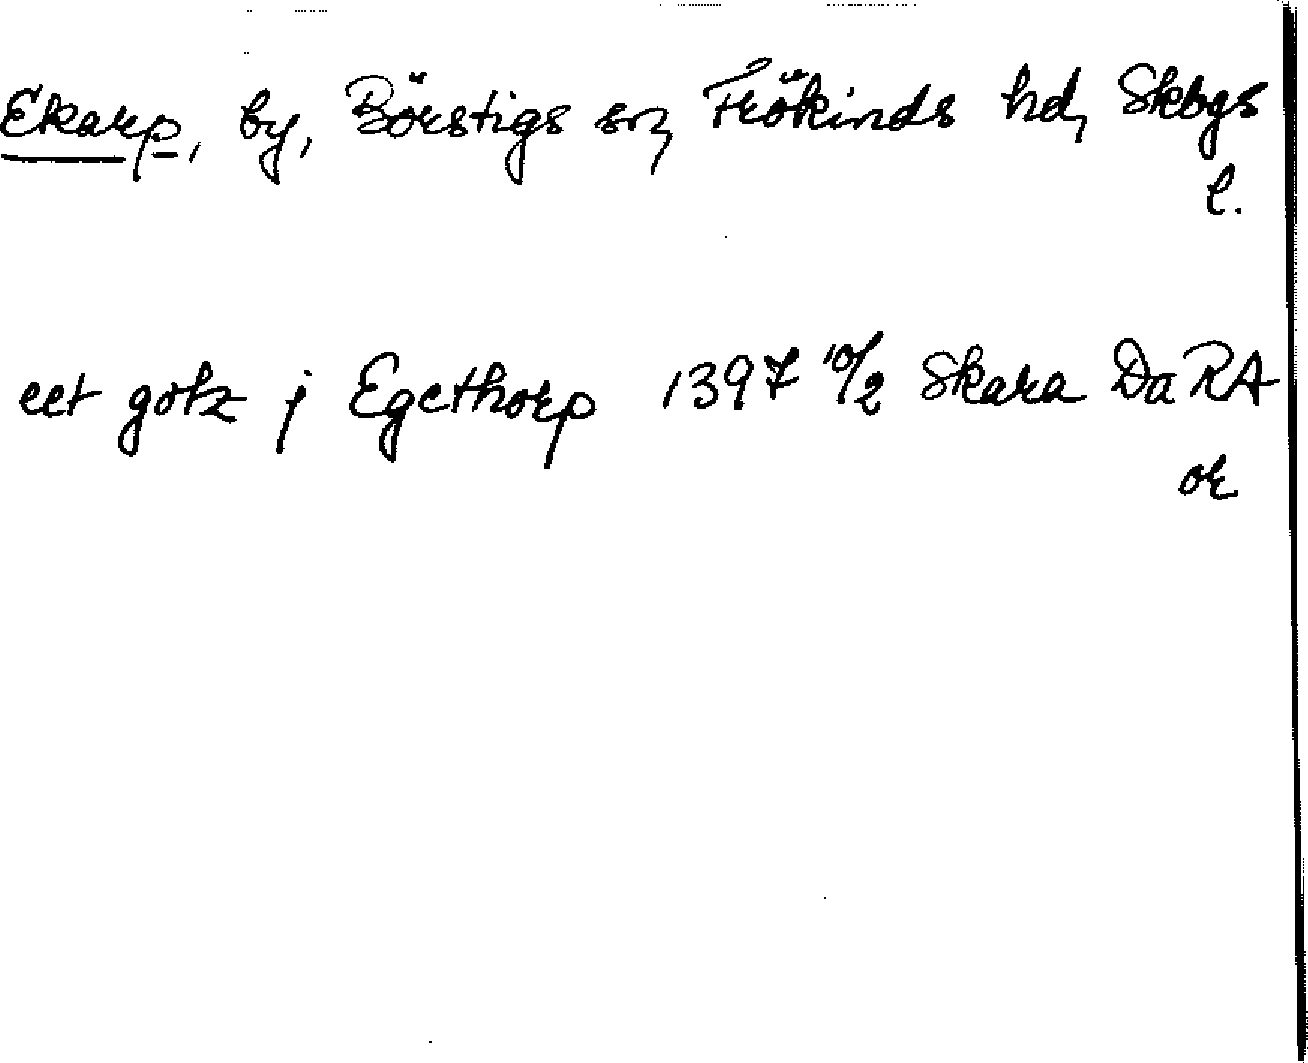 Ekarp, by, Börstigs sn, Frökinds hd, Skbgs
l.
eet gotz j Egethorp 1397 10/2 Skara Da RA
or